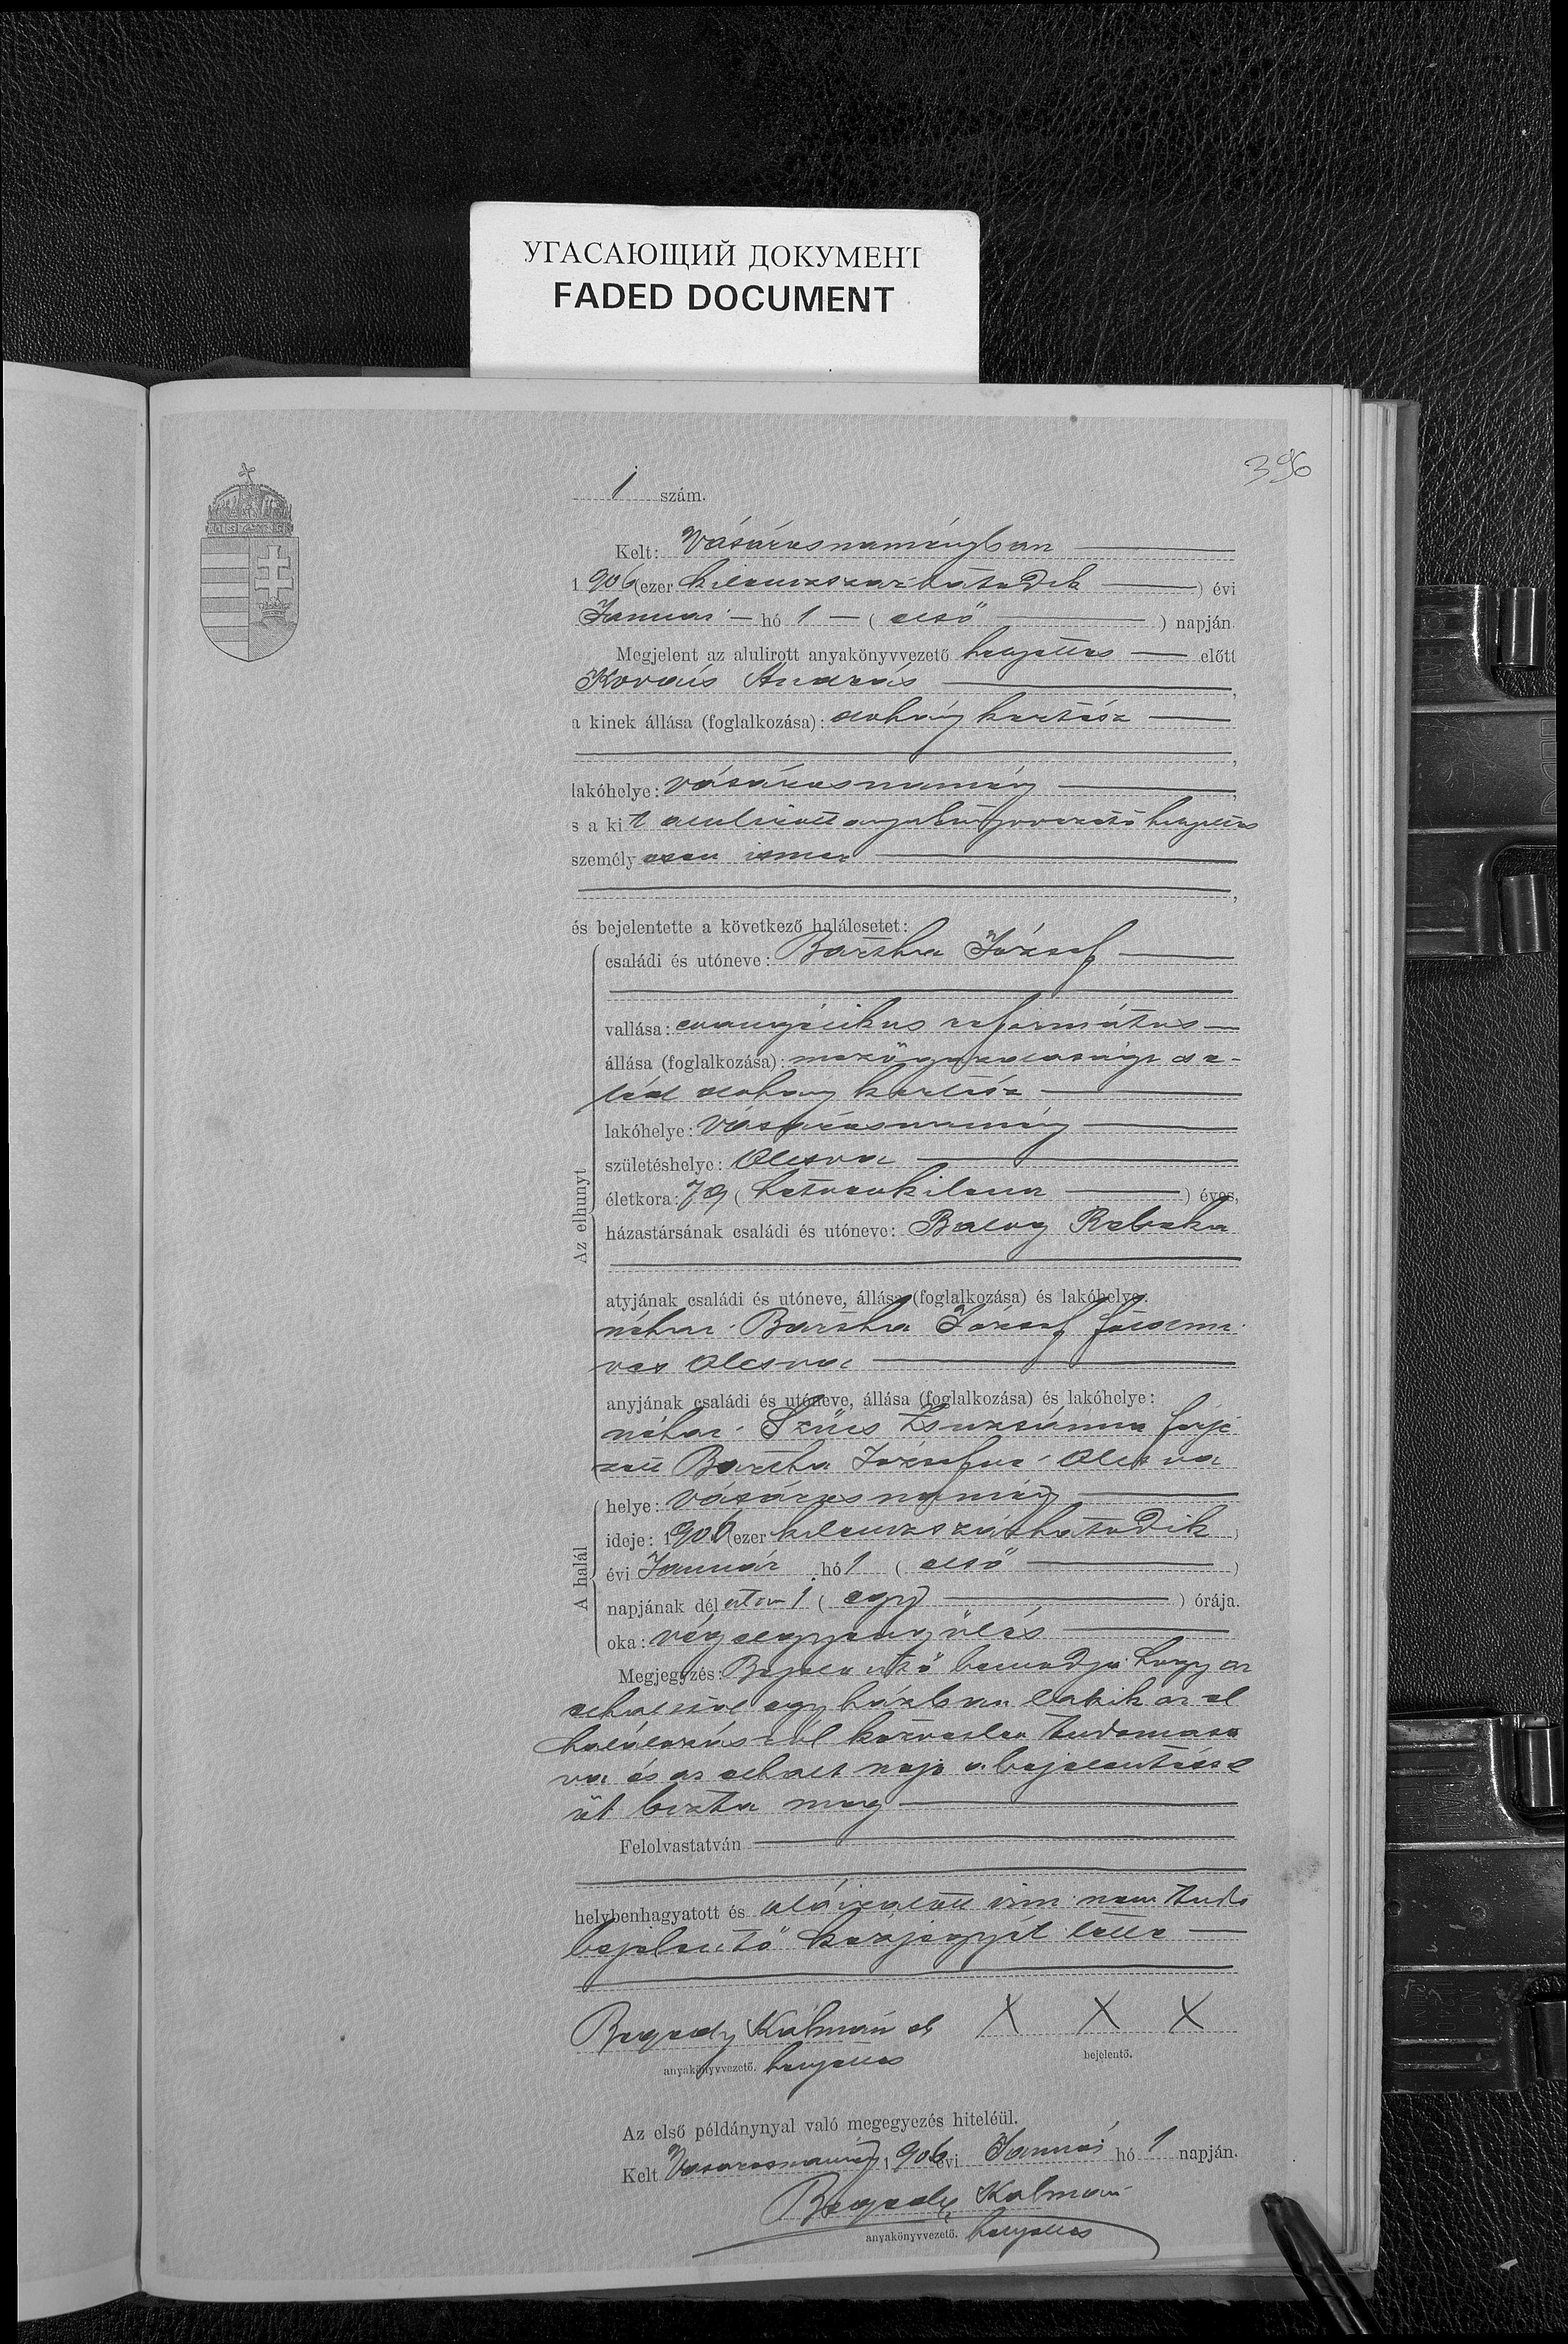 УГАСАЮЩИЙ ДОКУМЕНТ
FADED DOCUMENT
396
1 szám.
Kelt: Vásárosnaményban
1906 (ezer kilenczszázhatodik ) évi
Januári hó 1 ( első ) napján
Megjelent az alulirott anyakönyvvezető helyettes előtt
Kovács András ,
a kinek állása (foglalkozása): dohány kertész
,
lakóhelye: vásárosnamény ,
s a kit alulirott anyakönyvvezető helyettes
személyesen ismer
,
és bejelentette a következő halálesetet:
Az elhunyt
családi és utóneve: Bartha József
vallása: evangélikus református
állása (foglalkozása): mezőgazdasági cse-
léd dohány kertész
lakóhelye: Vásárosnamény
születéshelye: Olcsva
életkora: 79 ( hetvenkilencz ) éves,
házastársának családi és utóneve: Balog Rebeka
atyjának családi és utóneve, állása (foglalkozása) és lakóhelye:
néhai Bartha József földmi
ves Olcsva
anyjának családi és utóneve, állása (foglalkozása) és lakóhelye:
néhai Szűcs Zsuzsánna férje
zett Bartha Józsefné Olcsva
A halál
helye: vásárosnamény
ideje: 1906 (ezer kilenczszázhatodik )
évi Január hó 1 ( első )
napjának délután 1 ( egy ) órája.
oka: végelgyengülés
Megjegyzés: Bejelentő bemondja hogy az
elhalttal egy házban lakik az el
halálozásról közvetlen tudomása
van és az elhalt neje a bejelentéssel
őt bízta meg
Felolvastatván
helybenhagyatott és aláiratott irni nem tudó
bejelentő kézjegyét tette
Kálmán X X X
anyakönyvvezető. helyettes bejelentő.
Az első példánynyal való megegyezés hiteléül.
Kelt Vásárosnamény 1906 évi Január hó 1 napján.
Kálmán
anyakönyvvezető. helyettes